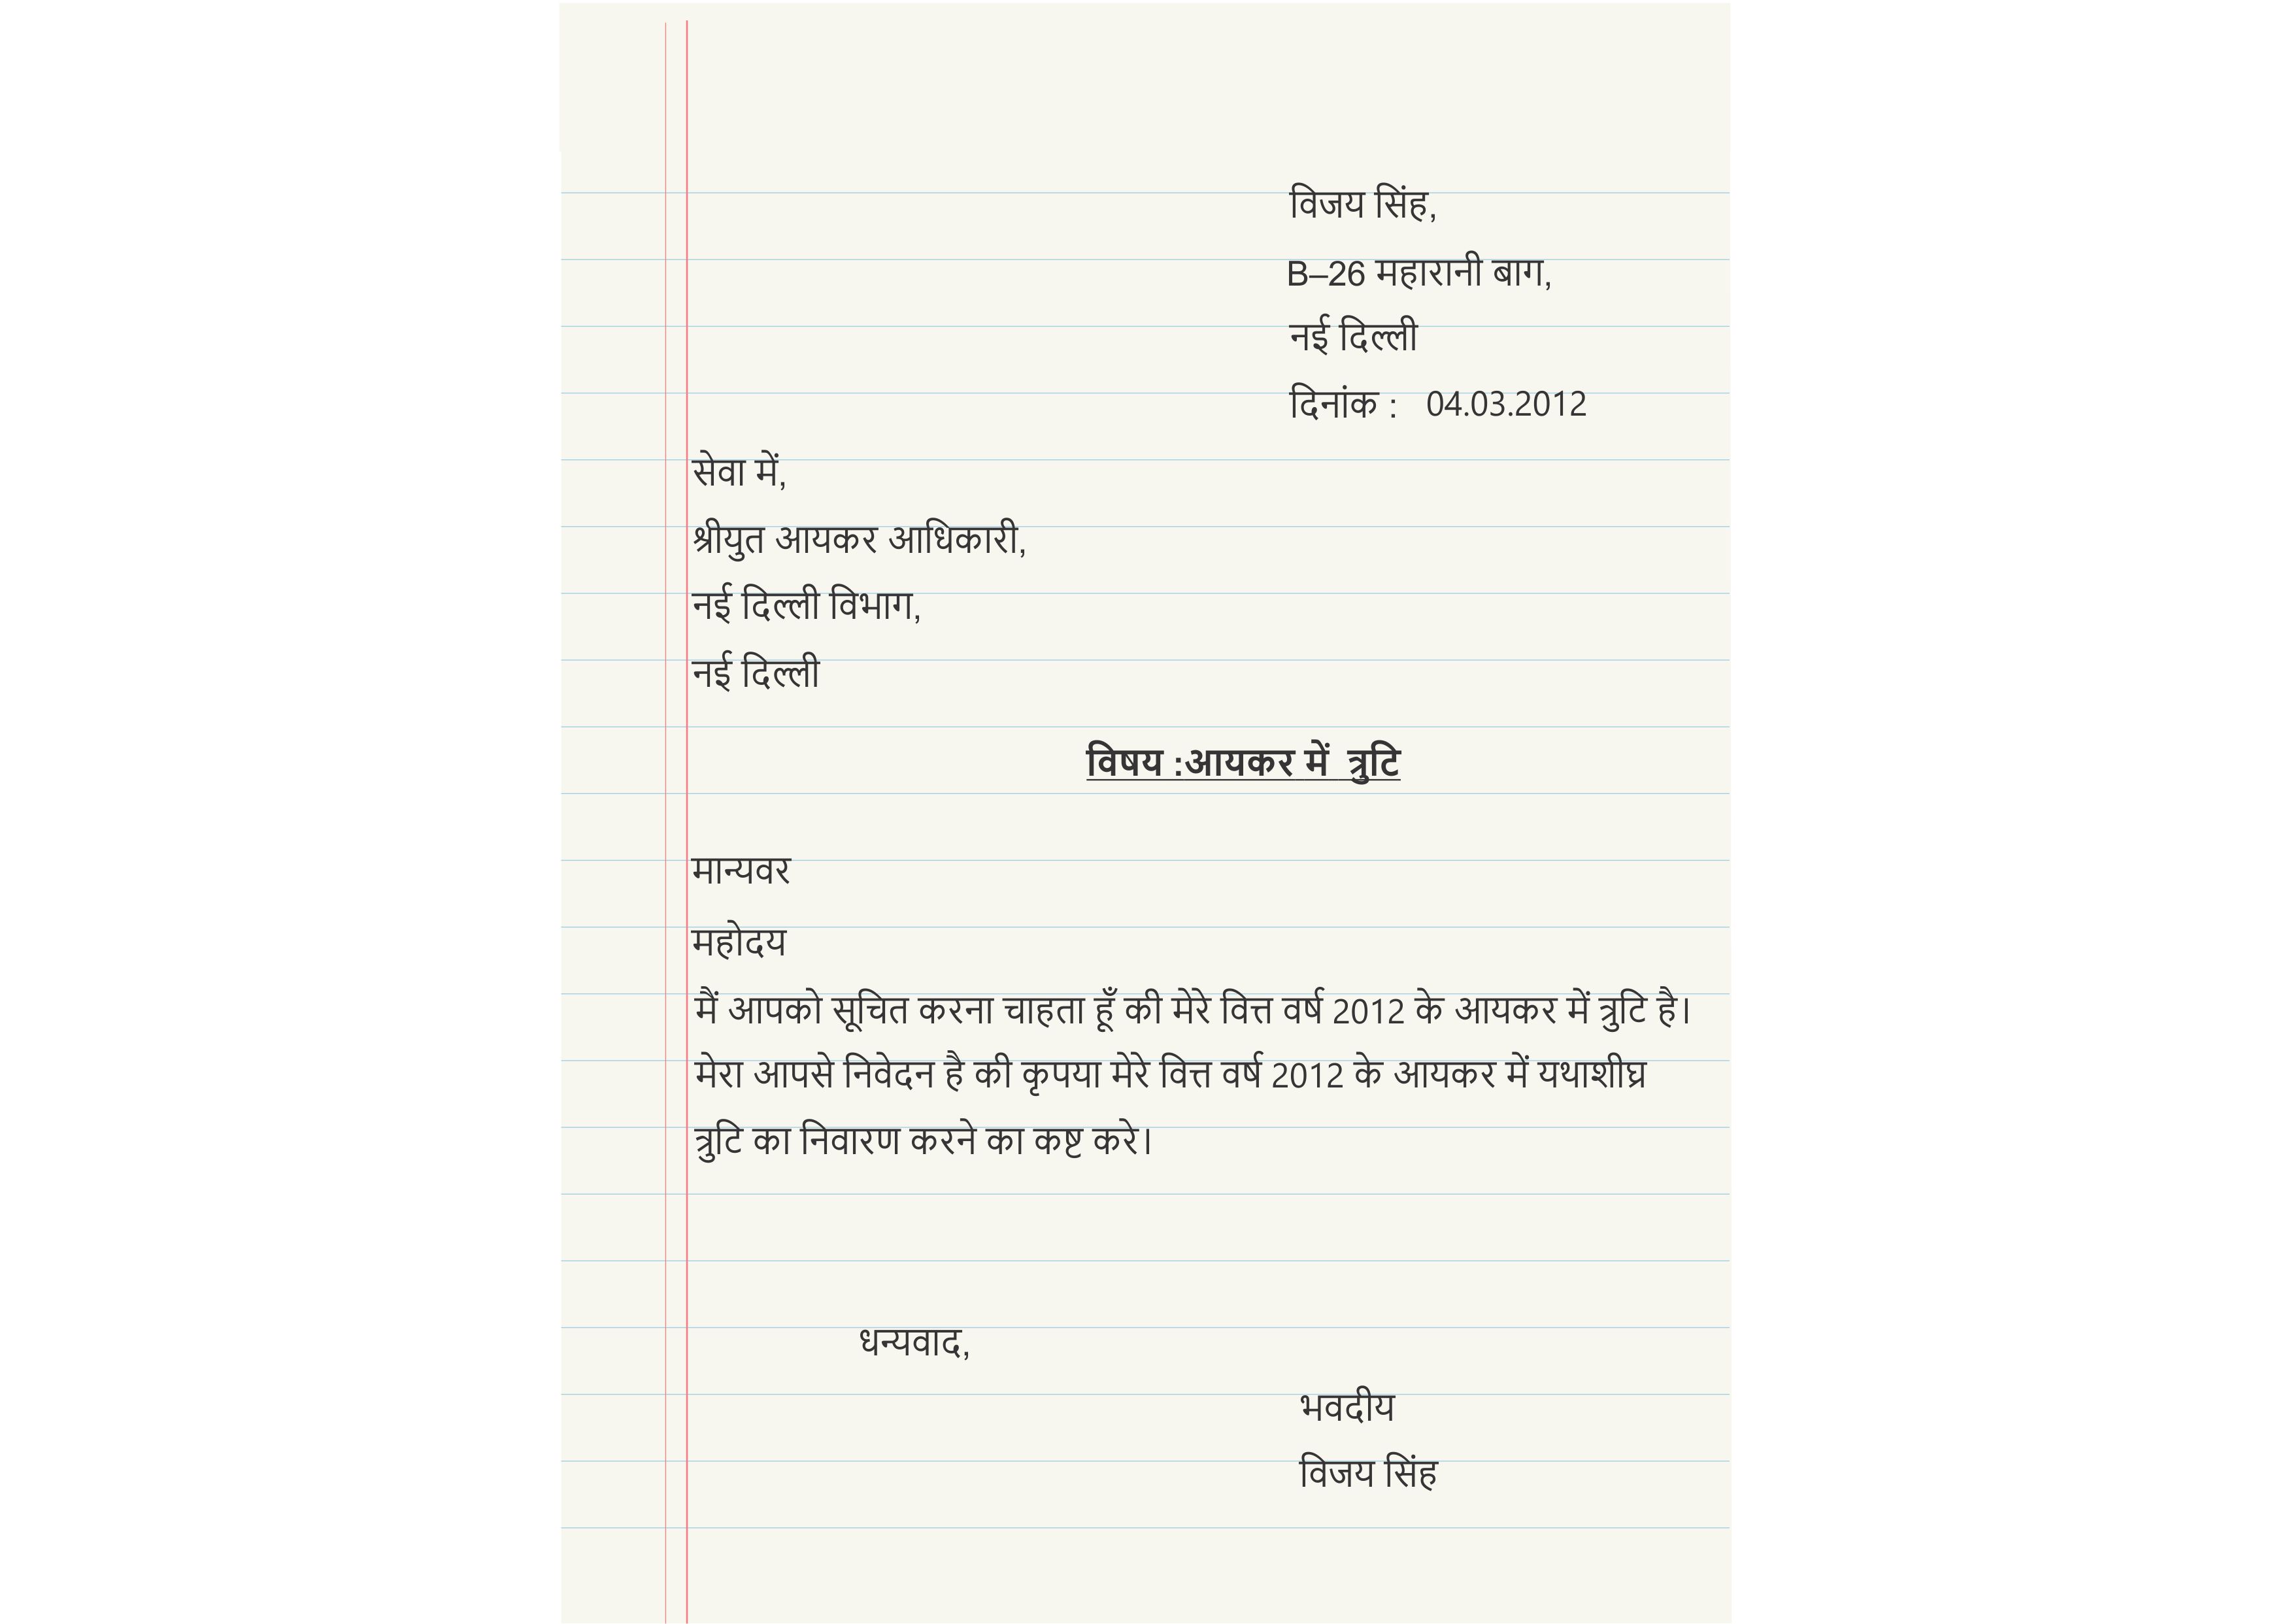 विजय सिंह,
B–26 महारानी बाग,
नई दिल्ली
दिनांक : 04.03.2012
सेवा में,
श्रीयुत आयकर आधिकारी,
नई दिल्ली विभाग,
नई दिल्ली
विषय :आयकर में त्रुटि
मान्यवर
महोदय
मैं आपको सूचित करना चाहता हूँ की मेरे वित्त वर्ष 2012 के आयकर में त्रुटि है।
मेरा आपसे निवेदन है की कृपया मेरे वित्त वर्ष 2012 के आयकर में यथाशीघ्र
त्रुटि का निवारण करने का कष्ट करे।
धन्यवाद,
भवदीय
विजय सिंह